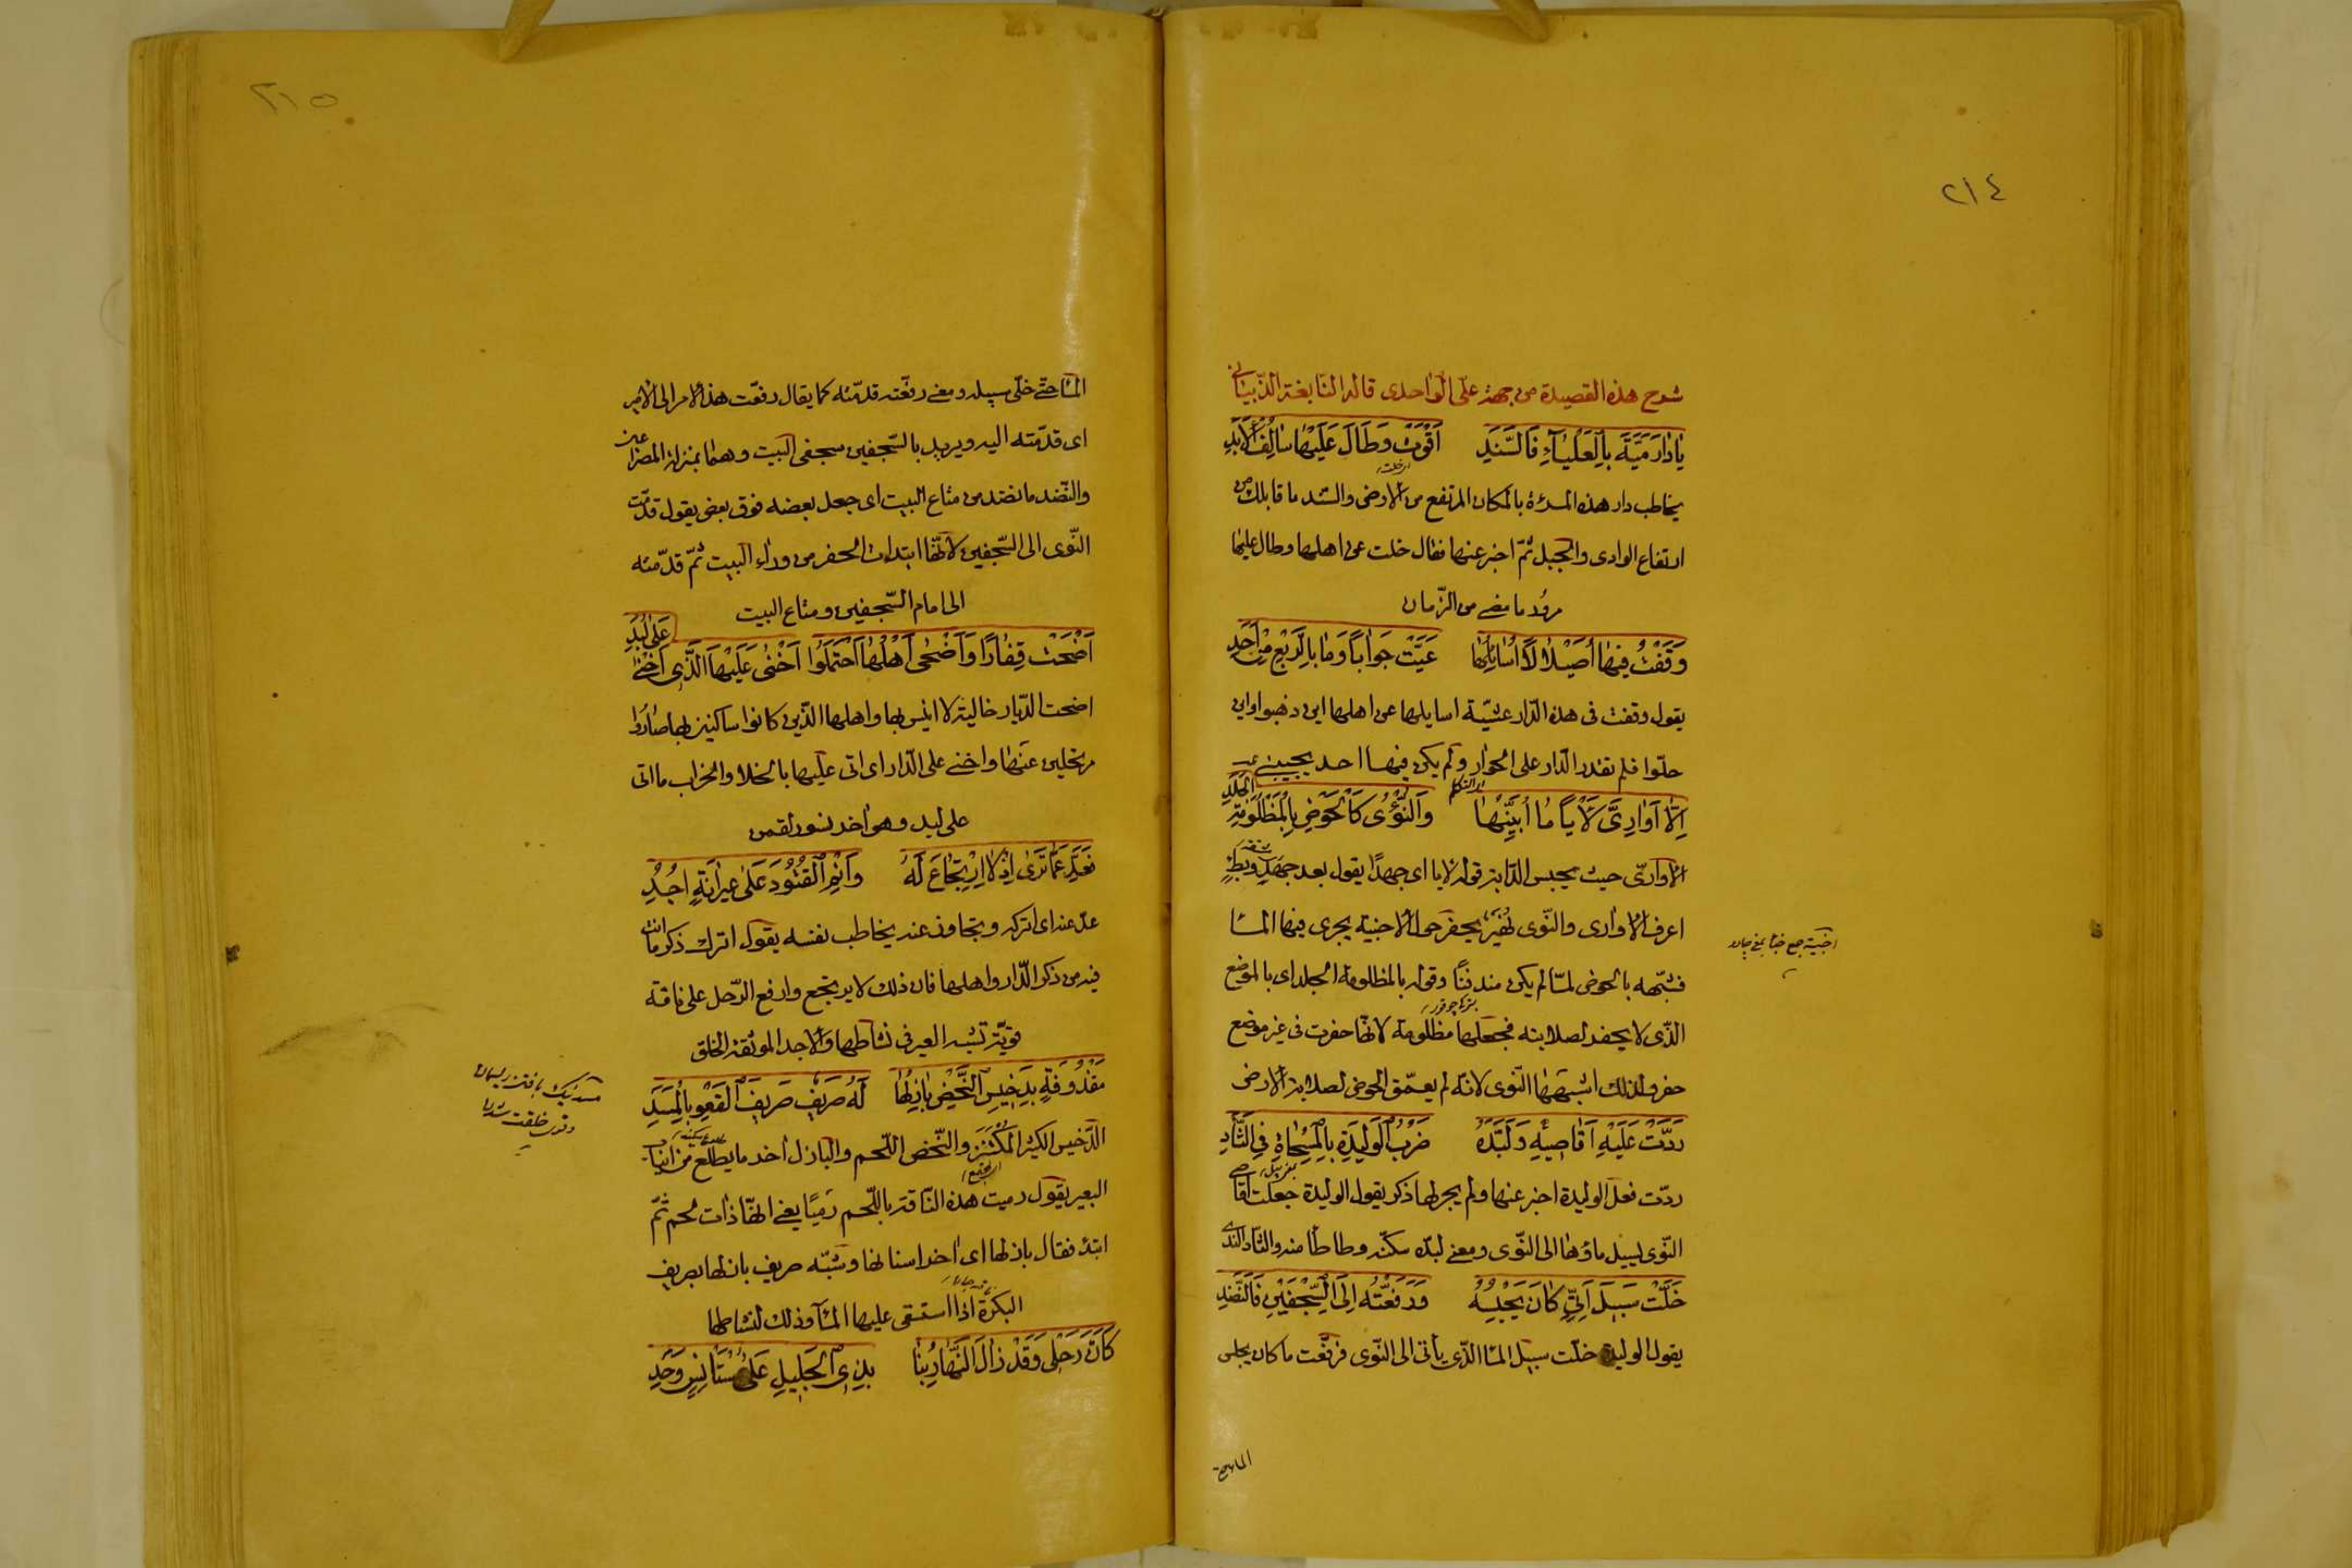 ٢١٤
شرح هذه القصيدة من جهة علّى الواحدى قاله النّابغة الذّبيانى
يٰا دٰارَ مَيَّةَ بِالْعَلْيٰآءِ فَالسَّنَدِ اَقْوَتْ وَطَالَ عَلَيْهٰا سٰالِفُ الْاَبَدِ
يخاطب دار هذه المرئة بالمكان المرتفع من الارض والسّند ما قابلك من
ارتفاع الوادى والجبل ثمّ اخبر عنها فقال خلت عن اهلها وطال عليها
مرور ما مضى من الزّمان
وَقَفْتُ فيهٰا اُصَيْلٰالًا اُسٰايِلُهٰا عَيَّتْ جَوٰاباً وَمٰا بِالرَّبْعِ مِنْ اَحَدِ
يقول وقفت فى هذه الدّار عشيّة اسايلها عن اهلها اين ذهبوا واين
حلّوا فلم تقدر الدّار على الجوار ولم يكن فيهـا احـد يجيبنى
اِلّٰا اَوٰارِىَّ لَأْياً مٰا اُبَيِّنُهٰا وَالنُّؤْىُ كَالْحَوْضِ بِالْمَظْلُومَةِ الْجَلَدِ
الاوارىّ حيث يحبس الدّابة قوله لايا اى جهدًا يقول بعد جهد وبطء
اعرف الاوارى والنّوى يحفر حول الاخبية يجرى فيها المـا
فشبّهه بالحوض لمّا لم يكن وقوله بالمظلومة الجلد اى بالموضع
الّذى لا يحفر لصلابته فجعلها مظلومة لانّها حفرت فى غير موضع
حفر ولذلك اشبهها النّوى لانّه لم يعمّق الحوض لصلابة الارض
رَدَّتْ عَلَيْهِ اَقٰاصِيْهِ وَلَبَّدَهُ ضَرْبُ الْوَلِيدَةِ بِالْمِسْحٰاةِ فِى الثَّأَدِ
ردّت فعل الوليدة اخبر عنها ولم يجر لها ذكر يقول الوليدة جعلت اقاصى
النّوى يسيل ماؤها الى النّوى ومعنى لبدّه سكّنه وطاطأ منه والثّأد الندى
خَلَّتْ سَبيلَ اَتِىٍّ كٰانَ يَحْبِسُهُ وَرَفَّعَتْهُ اِلَى السِّجْفَيْنِ فَالنَّضَدِ
يقول الوليدة خلّت سبيل الماالّذى يأتى الى النّوى فرفّعت ما كان
اخبية جمع خبا
٢١٥
الماحتّى خلّى سبيله ومعنى رفّعته قدّمته كما يقال رفعّت هذالامر الى الامير
اى قدّمته اليه ويريد بالسّجفين سجفى البيت وهما بمنزلة المصراعين
والنّضد ما نضد من متاع البيت اى جعل بعضه فوق بعض يقول قدّمت
النّوى الى السّجفين لانّها ابتدات الحفر من وراء البيت ثمّ قدّمته
الى امام السّجفين ومتاع البيت
اَضْحَتْ قِفٰارًا وَاَضْحٰى اَهْلُهٰا احْتَمَلُوا اَخْنٰى عَلَيْهَا الَّذِى اَخْنٰى عَلٰى لُبَدِ
اضحت الدّيار خالية لا انيس بها واهلها الّذين كانوا ساكنين بها صٰارُوا
مرتحلين عنها واخنى على الدّار اى اتى عليها بالخلا والخراب ما اتى
على لبد وهو اخر نسور لقمن
فَعَدِّ عَمّٰا تَرٰى اِذْ لَا ارْتِجٰاعَ لَهُ وَانْمِ الْقُتُودَ عَلٰى عَيْرٰانَةٍ اُجُدِ
عدّ عنه اى اتركه وتجاوز عنه يخاطب نفسه يقول اترك ذكر ما انت
فيه من ذكر الدّار واهلها فان ذلك لا يرتجع وارفع الرّحل على ناقة
قويّة تشبه العير فى نشاطها والاجد الموثقة الخلق
مَقْذُوفَةٍ بِدَخيسِ النَّحْضِ بٰازِلُهٰا لَهُ صَريفٌ صَريفَ الْقَعْوِ بِالْمَسَدِ
الدّخيس الكثير المكتنز والنّحض اللّحم والبازل اخر ما يطلع من انياب
البعير يقول رميت هذه النّاقة باللّحم رميًا يعنى انها ذات لحم ثمّ
ابتدء فقال بازلها اى اخر اسنانها وشبّه صريف بازلها بصريف
البكرة اذا استقى عليها المآء وذلك لنشاطها
كَاَنَّ رَحْلى وَقَدْ زٰالَ النَّهٰارُ بِنٰا بِذِى الْجَليلِ عَلٰى مُسْتَأْنِسٍ وَحَدِ